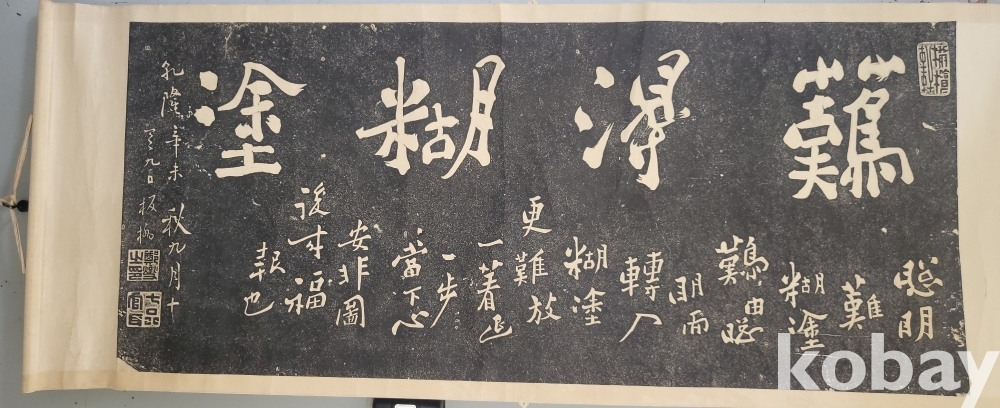 難得糊塗
聰明
難
糊塗
難由聰
明而
轉入
糊塗
更難放
一着退
一步
當下心
安非圖
後来福
報也
乾隆辛未秋九月十
有九日板橋
鄭燮之印
kobay